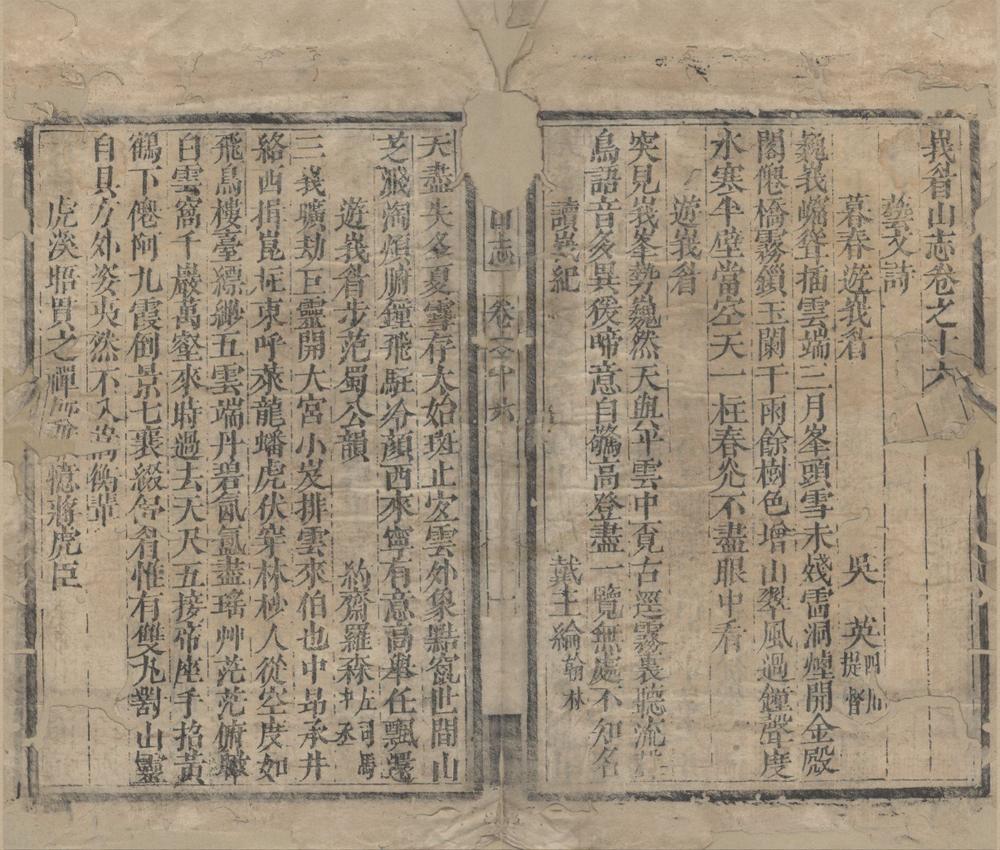 峩眉山志卷之十六
藝文詩
暮春遊峩眉 吳 英 四川提督
巍峩巑聳插雲端三月峯頭雪未殘雷洞煙開金殿
閣僊橋霧鎖玉闌干雨餘樹色增山翠風過鐘聲度
水寒半壁當空天一柱春光不盡眼中看
遊峩眉
突見峩峯勢巍然天與平雲中覓古逕霧裏聽流
鳥語音多異猨啼意自驚高登盡一覽無處不知名
讀異紀 戴王綸 翰林
天盡失冬夏雪存太始斑止安雲外象點窺世間山
芝滅淘煩腑鐘飛駐冷顏西來寧有意高舉任飄還
遊峩眉步范蜀公韻 約齋羅森 左司馬中丞
三峩曠劫巨靈開大宮小岌排雲來伯也中昂承井
絡西揖崑㘬東呼萊龍蟠虎伏穿林杪人從空度如
飛鳥樓臺縹緲五雲端丹碧氤氳盡瑤艸茫茫俯瞰
白雲窩千巖萬壑來時過去天尺五接帝座手招黃
鶴下僊阿九霞倒景七襄綴皆眉惟有雙九對山靈
自具方外姿爽然不入鴛鵷輩
虎溪晤貫之禪師憶蔣虎臣
山志
卷之十六
一